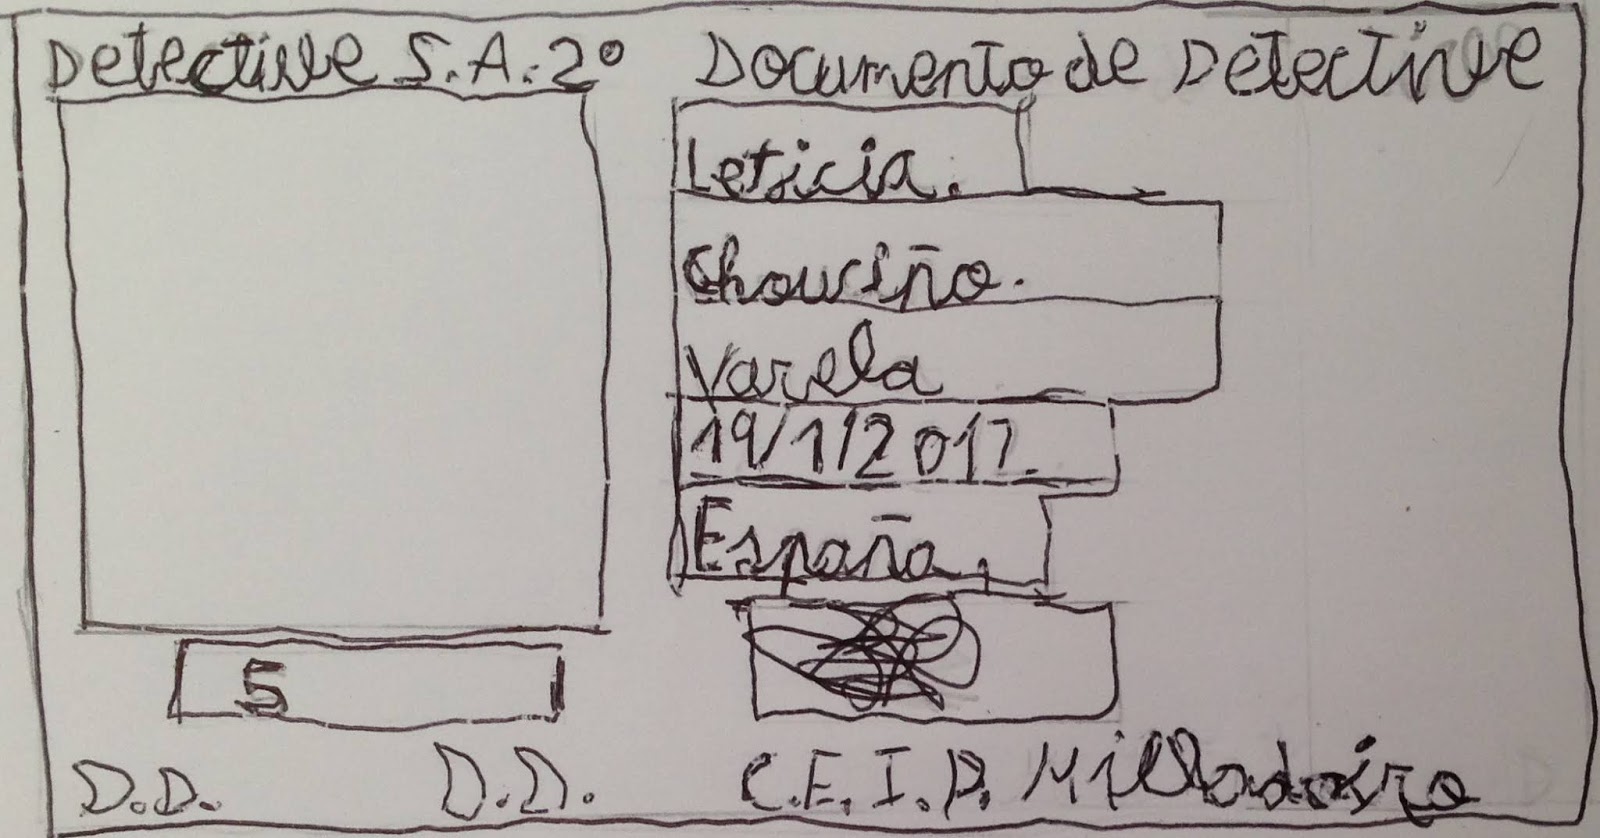 Detective S.A. 2º
Documento de Detective
Leticia.
Chouciño.
Varela
19/1/2017.
España.
5
D.D.
D.D.
C.E.I.P. Milladoiro